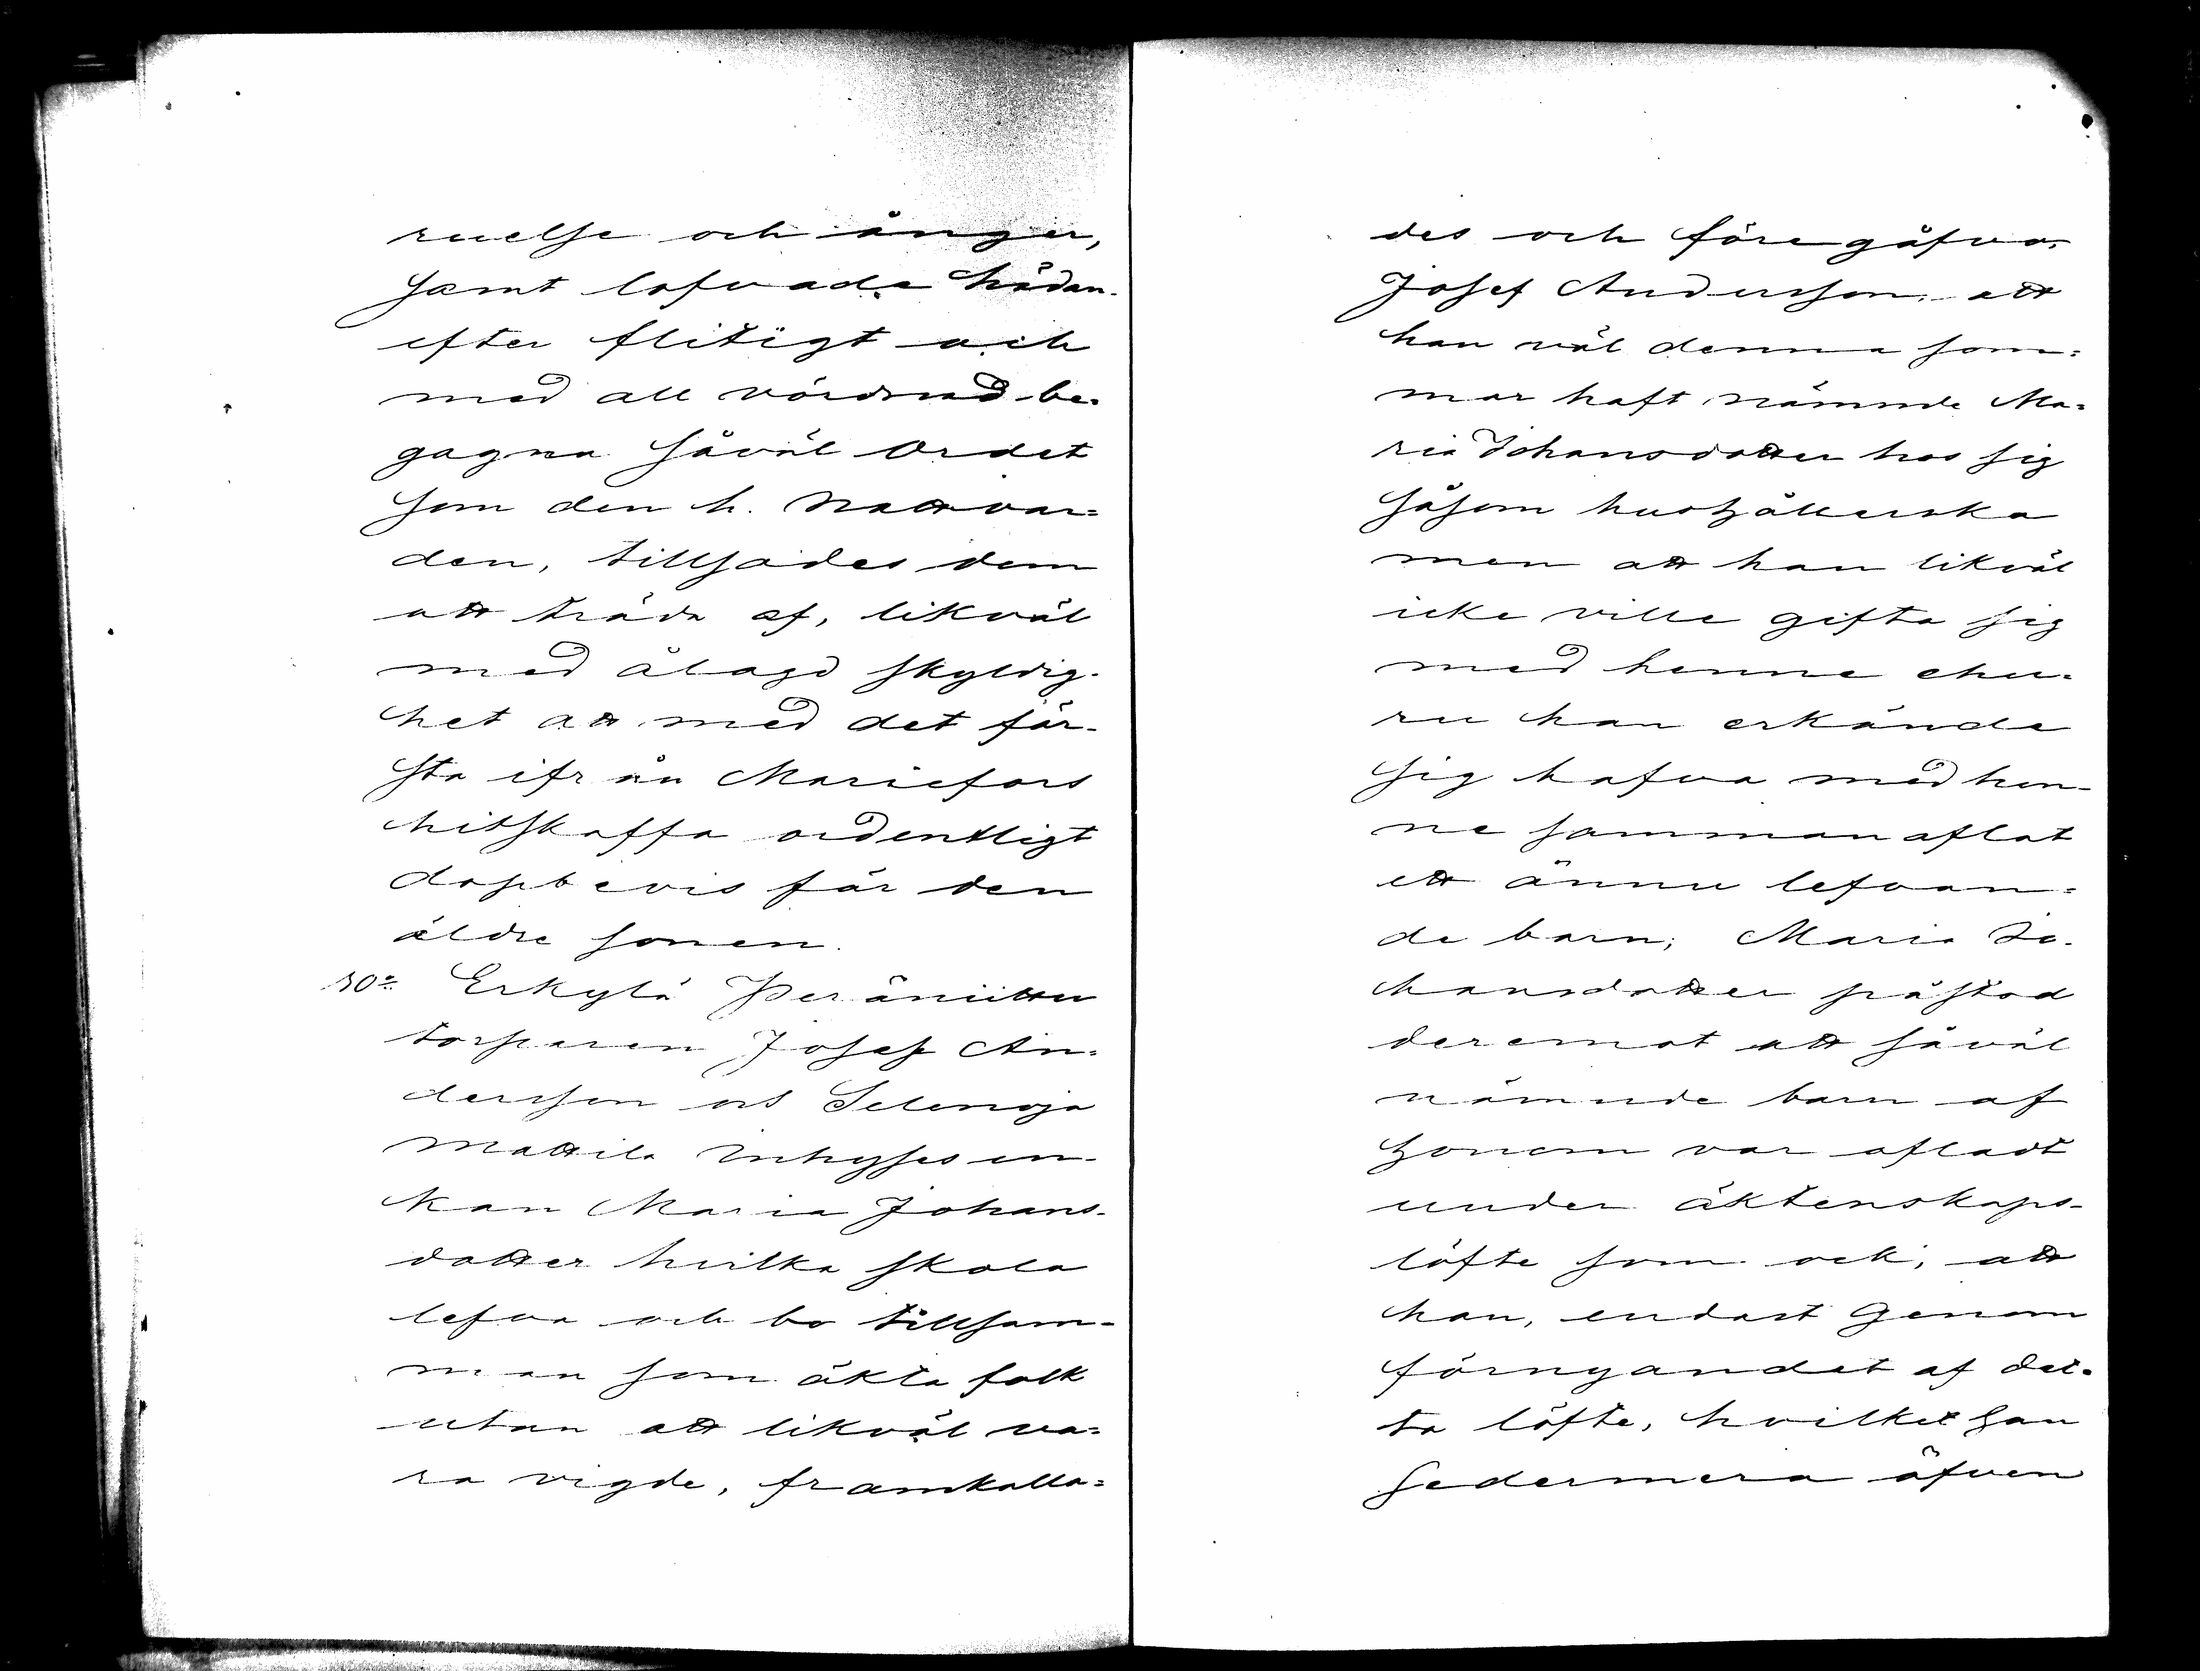 ruelse och ånger,
samt lofvade hädan-
efter flitigt och
med all vördnad be-
gagna såväl Ordet
som den h. Nattvar=
den, tillsades dem
att träda af, likväl
med ålagd skyldig-
het att med det för-
sta ifrån Mariefors
hitskaffa ordentligt
dopbevis för den
äldre sonen.
10º Erkylä Peräniittu
torparen Josef An-
dersson och Selenoja
Mattila Inhyses en-
kan Maria Johans-
dotter hvilka skola
lefva och bo tillsam-
man som äkta folk
utan att likväl va=
ra vigde, framkalla=
des och föregåfvo
Josef Andersson, att
han väl denna som=
mar haft nämnde Ma=
ria Johansdotter hos sig
såsom hushållerska
men att han likväl
icke ville gifta sig
med henne ehu-
ru han erkände
sig hafva med hen-
ne samman aflat
ett ännu lefvan=
de barn; Maria Jo-
hansdotter påstod
deremot att såväl
nämnde barn af
honom var afladt
under äktenskaps-
löfte som ock, att
han, endast genom
förnyandet af det-
ta löfte, hvilket han
sedermera äfven